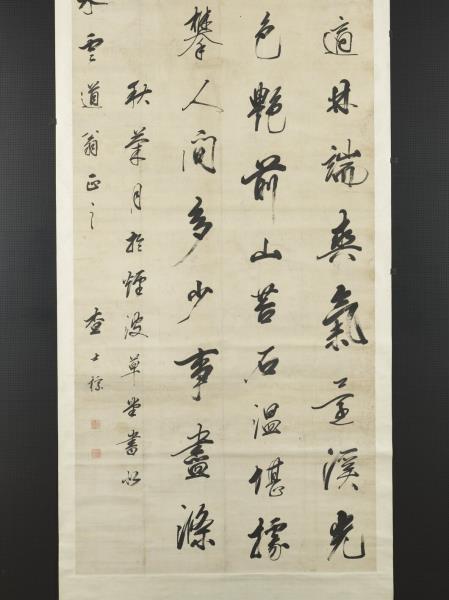 適林端爽氣溪光
色艷前山苔石温堪據
攀人間多少事盡滌
秋菊月於煙波草堂書似
雲道翁正之
查士標